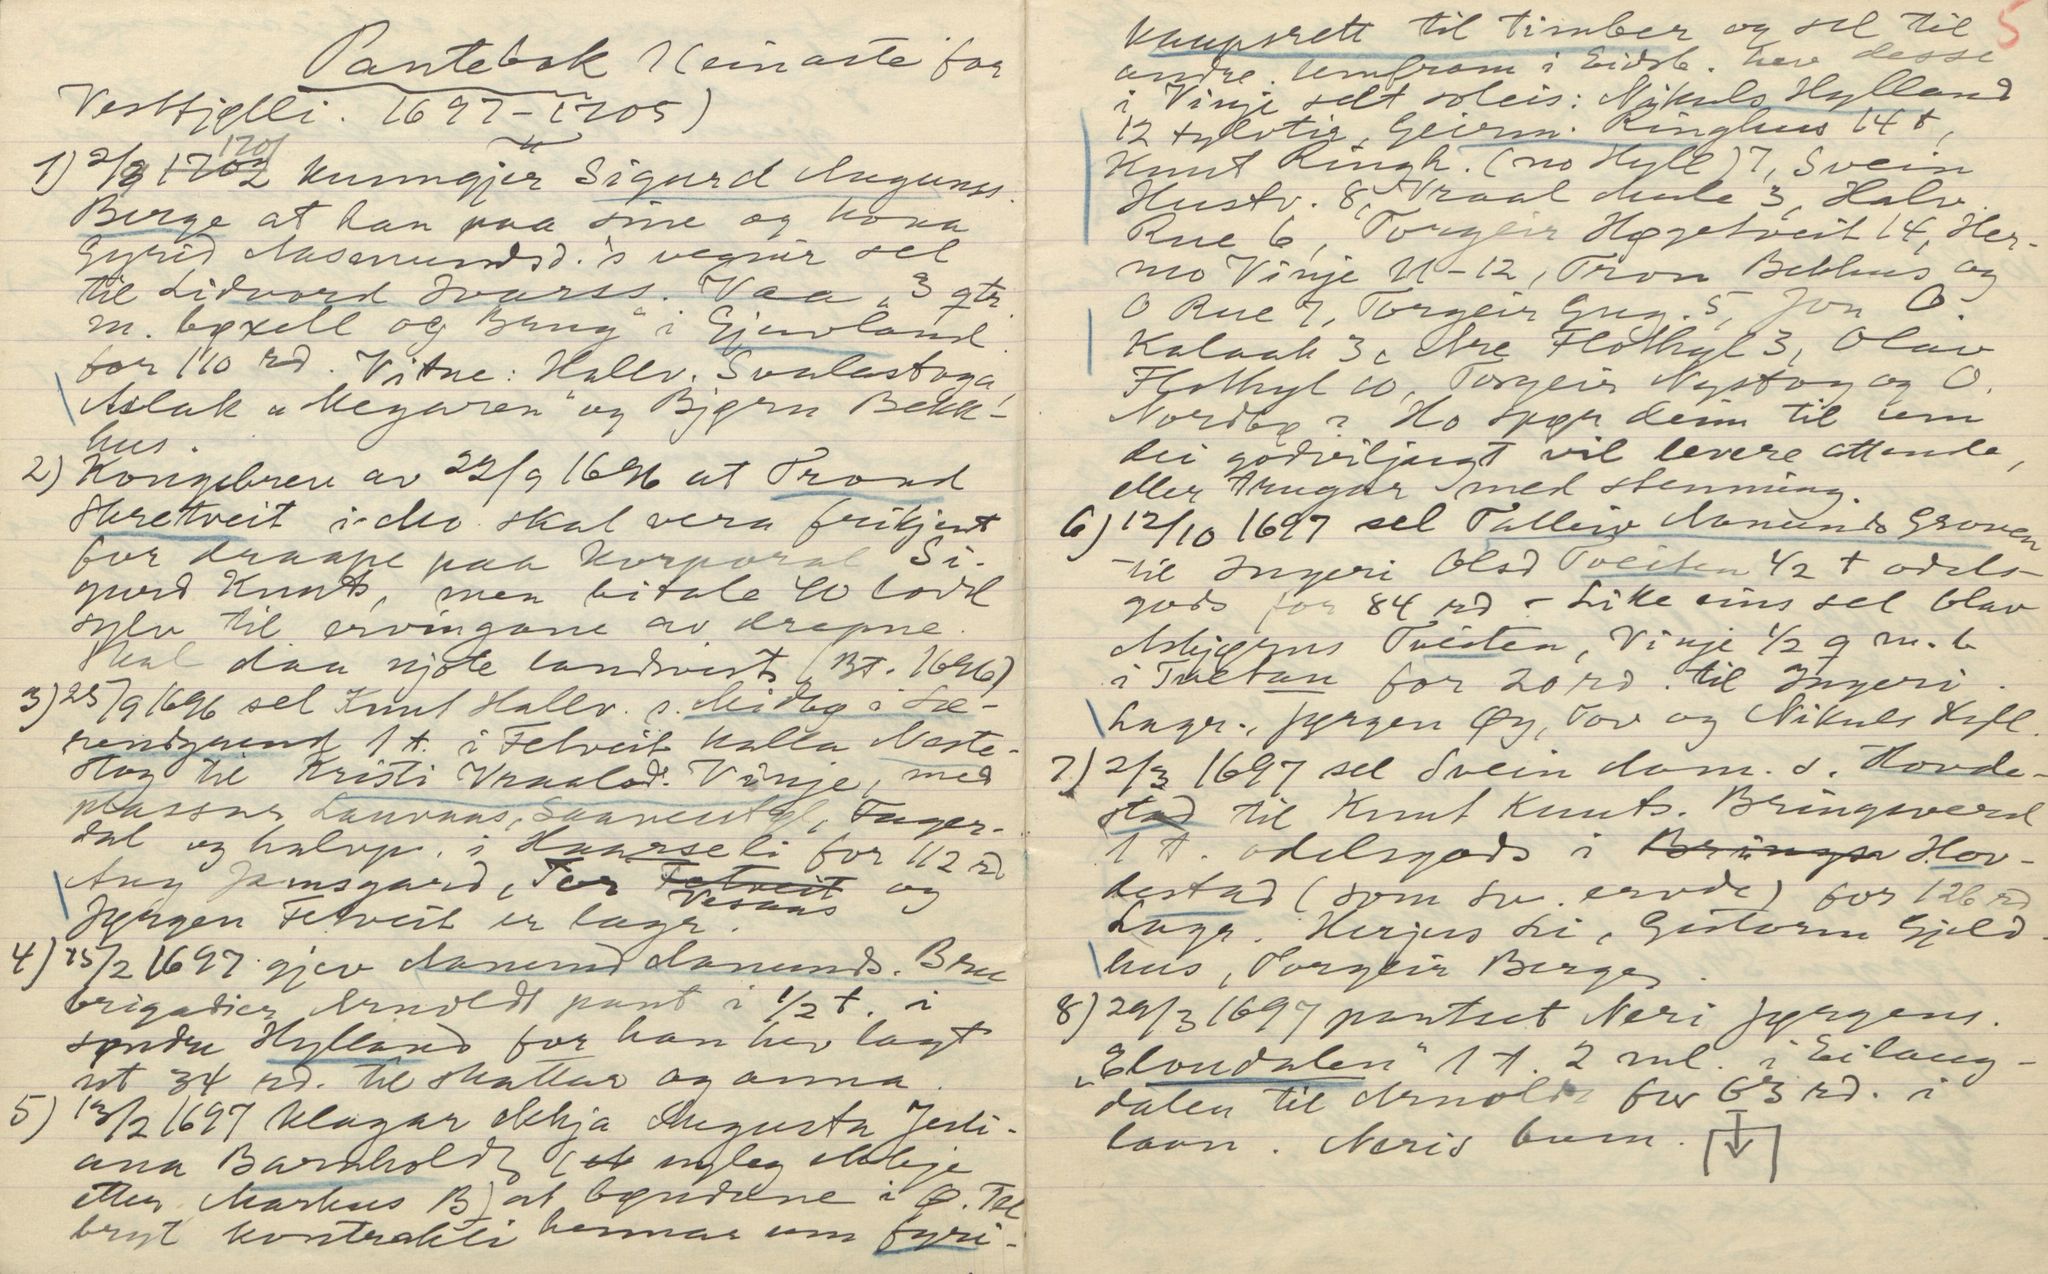 Pantebok 1 (einaste for
Vestfjelli. 1697-1705)
1) 2/3 1702 1701 kunngjer Sigurd Augunss.
Berge at han paa sine og kona
Gyrid Aasmundsd.'s vegnir sel
til Lidvord Ivarss. Vaa "3 qtr
m. bøxell og Brug" i Gjuvland
for 110 rd. Vitne: Hallv. Svalastoga,
Aslak "Megaren" og Bjørn Bekk-
hus.
2) Kongebrev av 22/9 1696 at Trond
Skretveit i Mo skal vera frikjent
for draape paa korporal Si-
gurd Knuts, men bitale 40 lodd
sylv til ervingane av drepne.
Skal daa njote landsvist (Bt. 1696)
3) 23/9 1696 sel Knut Hallv. s. Midbø i Læ-
rendgrend 1 t. i Felveit kalla Neste-
stog til Kristi Vraalsd. Vinje, med
plassar Lauvaas, Fager-
dal og halvp. i Haarseli for 112 rd
Aug Jamsgard, Tor Felveit Vesaas og
Jørgen Felveit er lagr.
4) 15/2 1697 gjev Aanund Aanunds. Bru
brigadier Arnoldt pant i 1/2 t. i
syndre Hylland for han hev lagt
ut 34 rd. til skattar og anna.
5) 13/2 1697 klagar ekkja Augusta Jesti-
ana Barnholdt ( ekkje
etter Markus B) at bøndane i Ø. Tel
bryt kontrakti hennar um fyri-
5
kaupsrett til timber og sel til
andre. Umfram i Eidsb. hev desse
i Vinje selt soleis: Nikuls Hylland
12 tylvtir, Geirm. Ringhus 14 t,
Knut Ringh. (no Hyll) 7, Svein
Hustv. 8, Vraal Mule 3, Halv.
Rue 6, Torgeir Høgetveit 14, Her-
mo Vinje 11-12, Tron Bekhus og
O Rue 7, Torgeir Grug. 5, Jon O.
Kalaak 3, Are Flothyl 3, Olav
Flothyl 10, Torgeir Nystog og O.
Nordbø ? Ho spør deim til um
dei godviljugt vil levere attende,
eller trugar med stemning.
6) 12/10 1697 sel Talleiv Aanunds Groven
til Ingeri Olsd Tveiten 1/2 t odels-
gods for 84 rd - Like eins sel Olav
Asbjørns Tveiten, Vinje 1/2 q m. b
i Tveitan for 20 rd. til Ingeri.
Lagr., Jørgen Øy, Tov og Nikuls Hyll.
7) 2/3 1697 sel Svein Aam. s. Hovde-
stad til Knut Knuts. Bringsverd
1 t. odelsgods i Brings Hov-
destad (som Sv. ervde) for 126 rd
Lagr. Herjus Li, Gutorm Gjeld-
hus, Torgeir Berge.
8) 29/3 1697 pantset Neri Jørgens.
"Elvudalen" 1 t. 2 ml. i Eilaug-
dalen til Arnoldt for 63 rd. i
laan. Neris bum.